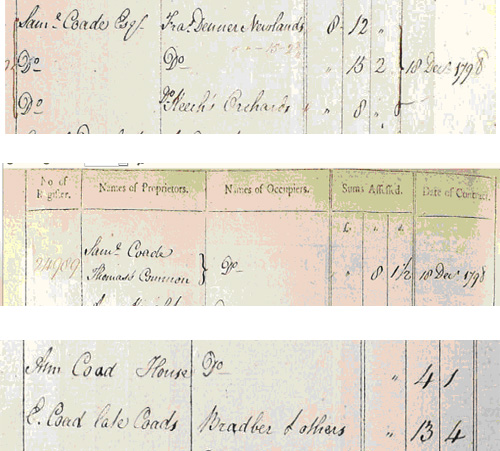 Saml. Coade Esqr. Fras Denner Newlands 8 - 12 "
Do Do " 15 2 } 18 Decr 1798
Do Do Keech's Orchards " 8 "
No. of Register. Names of Proprietors. Names of Occupiers. Sums Assessed. Date of Contract.
£. s. d.
24989 Saml. Coade
Thomas's Common } Do " 8 1½ 18 Decr 1798
Ann Coad House Do " 4 1
E. Coad late Coads Bradber & others " 13 4